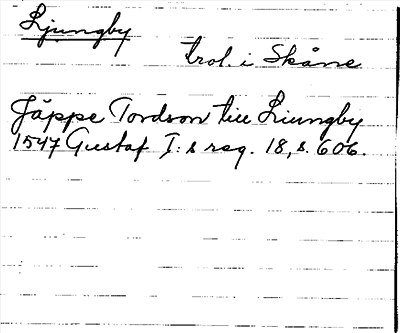 Ljungby
trol. i Skåne
Jäppe Tordson till Liungby
1547 Gustaf I:s reg. 18, s. 606.